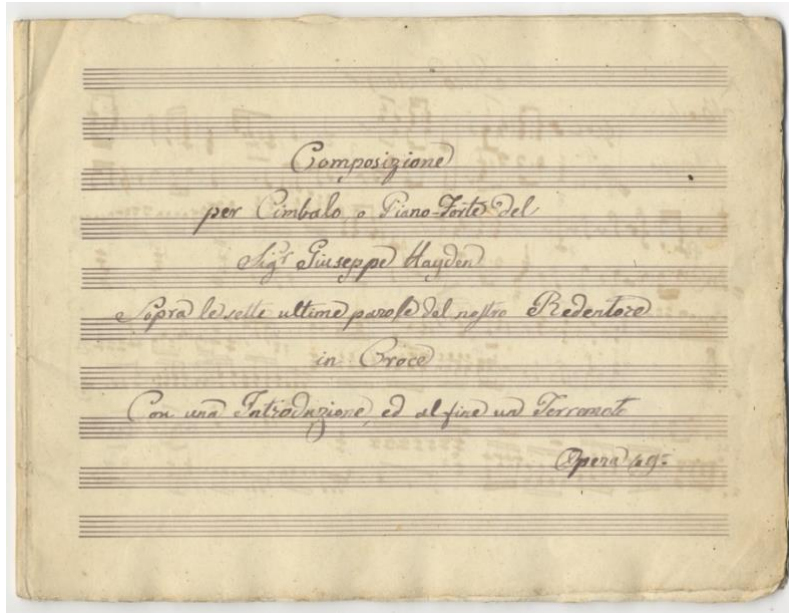 Composizione
per Cimbalo o Piano-Forte del
Sigr Giuseppe Hayden
Sopra le sette ultime parole del nostro Redentore
in Croce
Con una Introduzione, ed al fine un Terremoto
Opera 49: